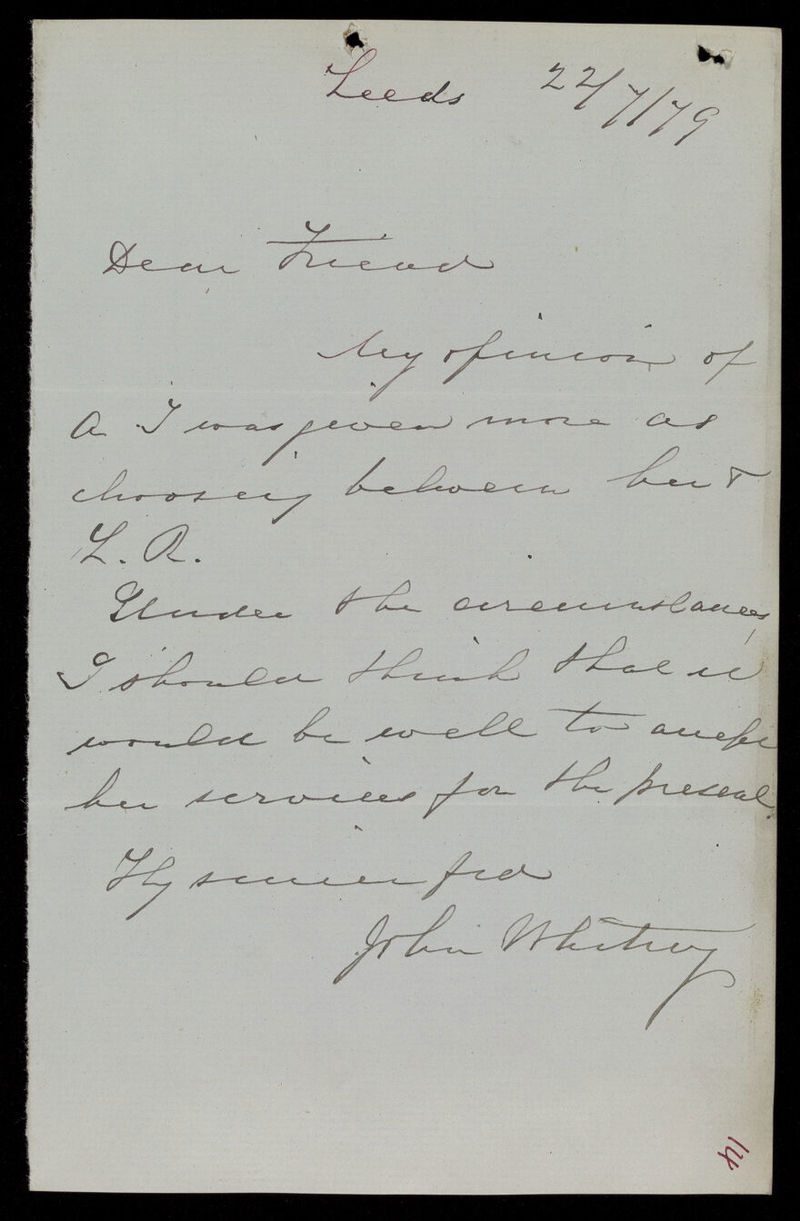 Leeds 22/7/79
Dear Friend
My opinion of
A I was given more as
choosing between her &
L. R.
Under the circumstances
I should think that it
would be well to accept
her services for the present.
Thy sincere frd
John Whiting
14